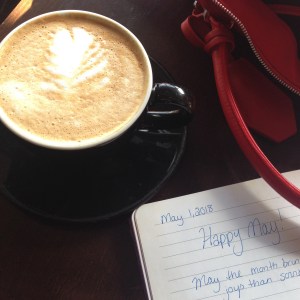 May 1, 2018
Happy May!
May the month bring
joys than